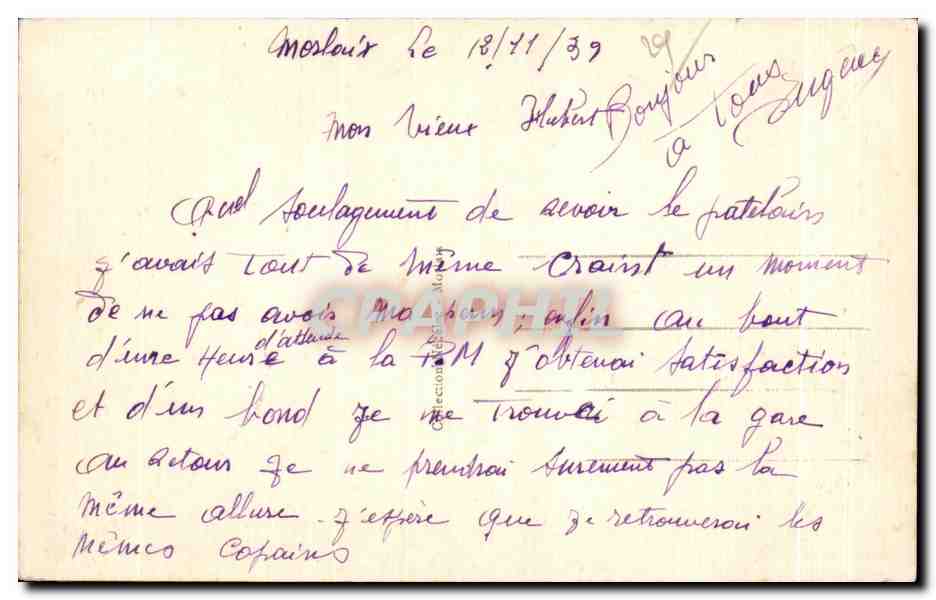 Morlaix le 12/11/39
29
Mon vieux Hubert
Bonjour
à Tous
Quel soulagement de revoir le patelain
j'avais Tout de même craint un moment
de ne pas avoir ma perm, enfin au bout
d'une Heure d'attente à la PM j'obtenai satisfaction
et d'un bond je me Trouvai à la gare
au retour je ne prendrai surement pas la
même allure. j'espère que je retrouverai les
mêmes copains
CPAPHIL
Collection
Morlaix